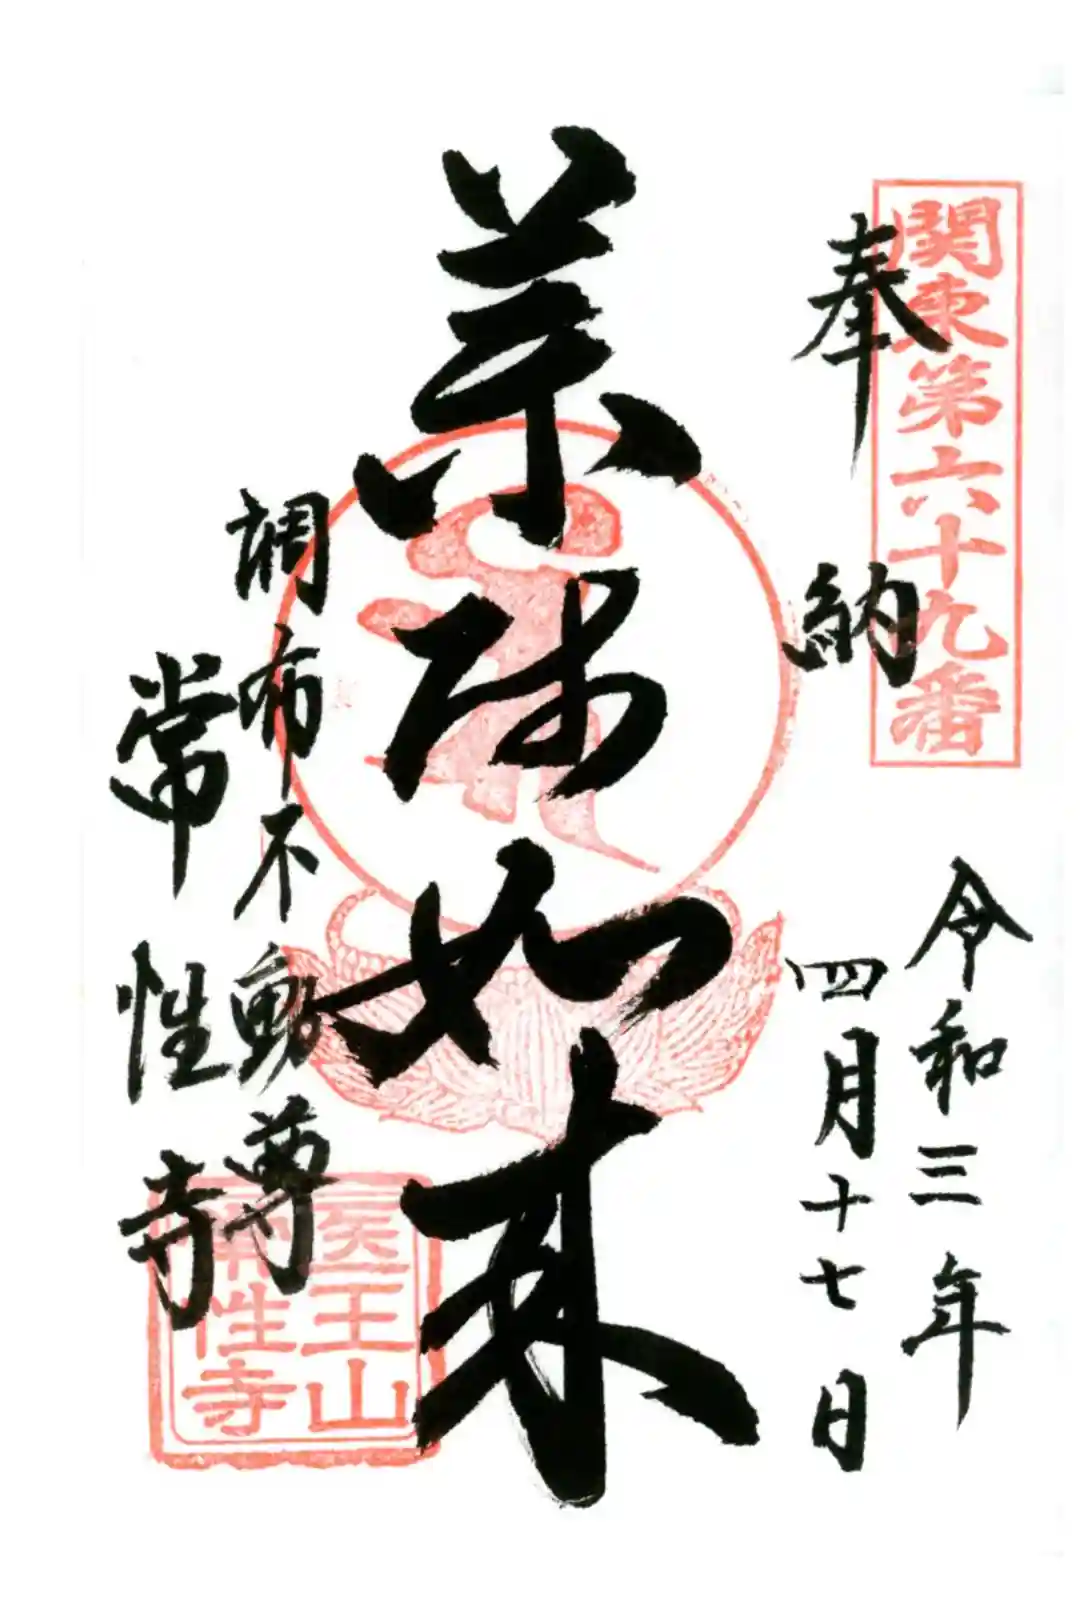 関東第六十九番
奉納
令和三年
四月十七日
薬師如来
調布不動尊
常性寺
医王山
常性寺